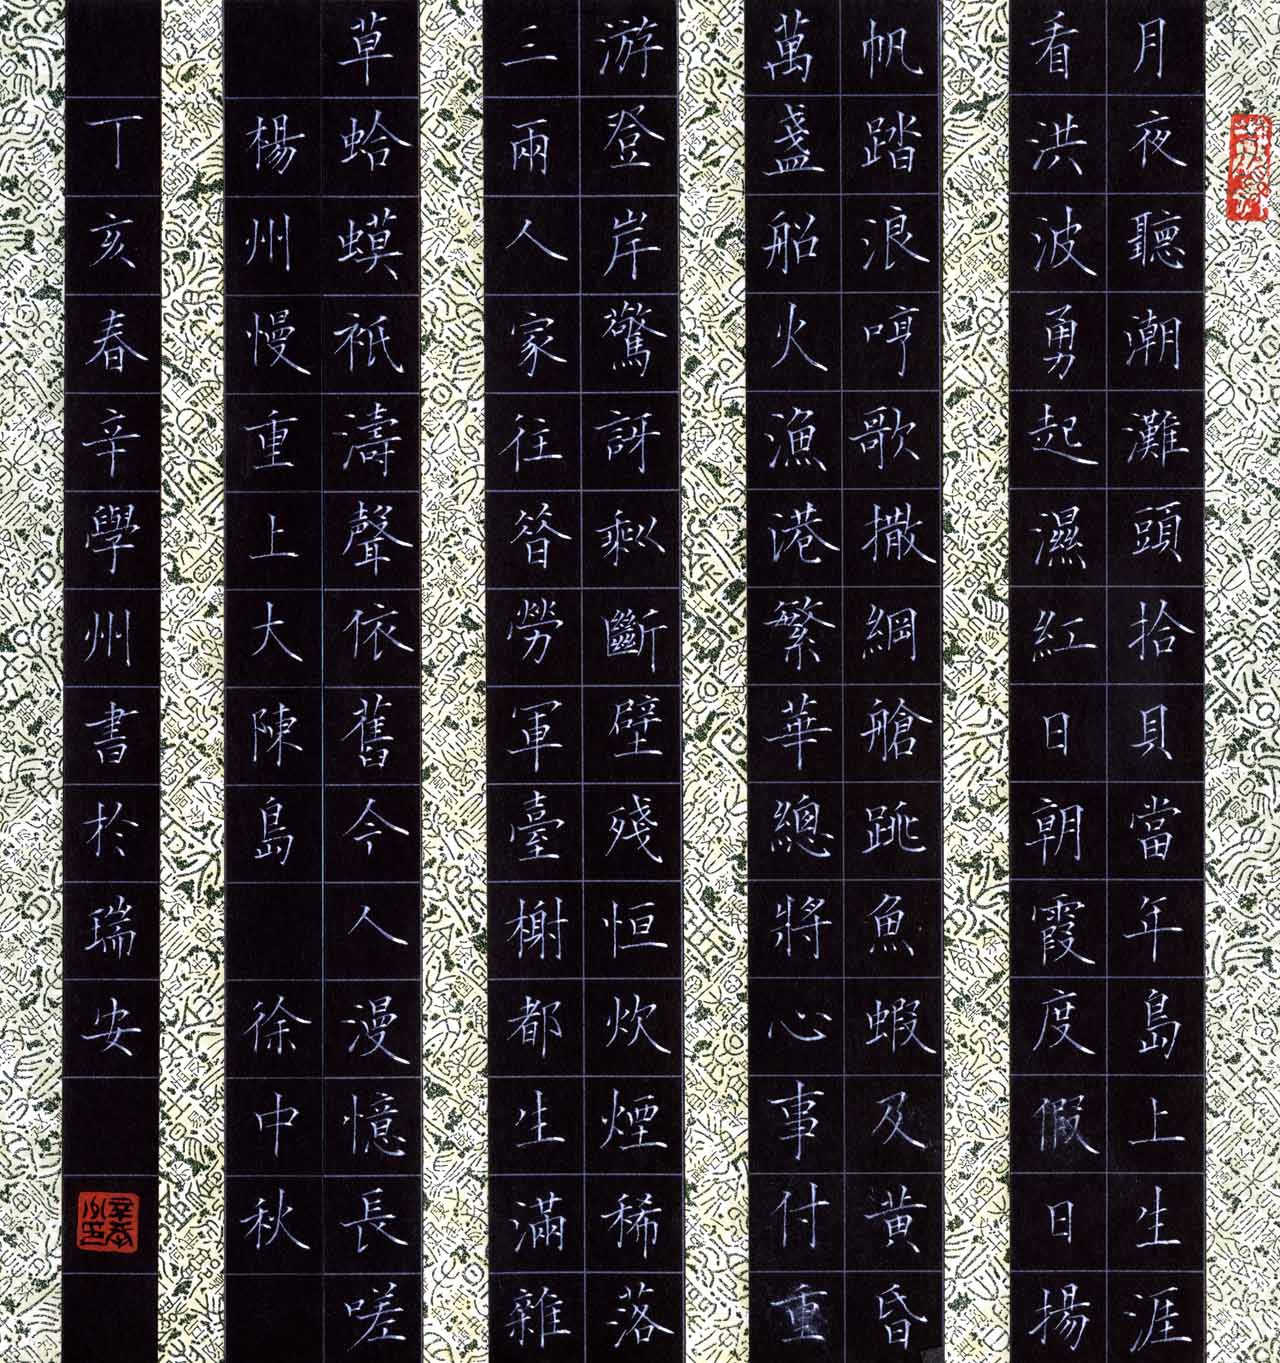 月夜聽潮灘頭拾貝當年島上生涯
看洪波勇起濕紅日朝霞度假日揚
帆踏浪哼歌撒網艙跳魚蝦及黃昏
萬盞船火漁港繁華總將心事付重
游登岸驚訝剩斷壁殘恒炊煙稀落
三兩人家往昝勞軍臺榭都生滿雜
草蛤蟆衹濤聲依舊今人漫憶長嗟
楊州慢重上大陳島 徐中秋
丁亥春辛學州書於瑞安